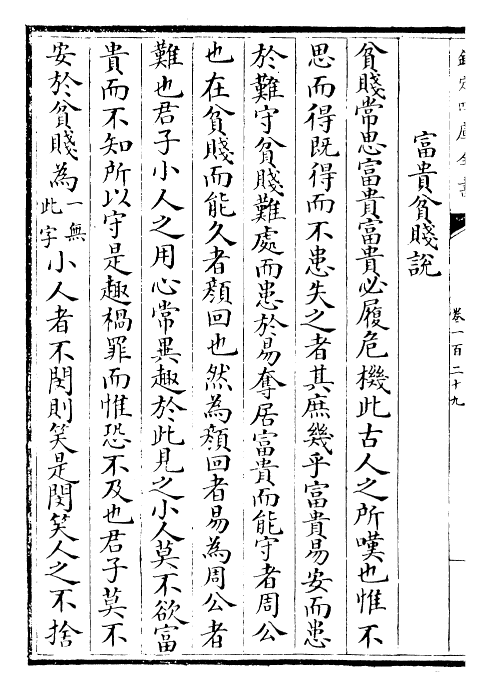 欽定四庫全書
卷一百二十九
富貴貧賤説
貧賤常思富貴富貴必履危機此古人之所嘆也惟不
思而得既得而不患失之者其庶幾乎富貴易安而患
於難守貧賤難處而患於易奪居富貴而能守者周公
也在貧賤而能久者顔回也然為顔回者易為周公者
難也君子小人之用心常異趣於此見之小人莫不欲富
貴而不知所以守是趣禍罪而惟恐不及也君子莫不
安於貧賤為一無此字小人者不閔則笑是閔笑人之不捨